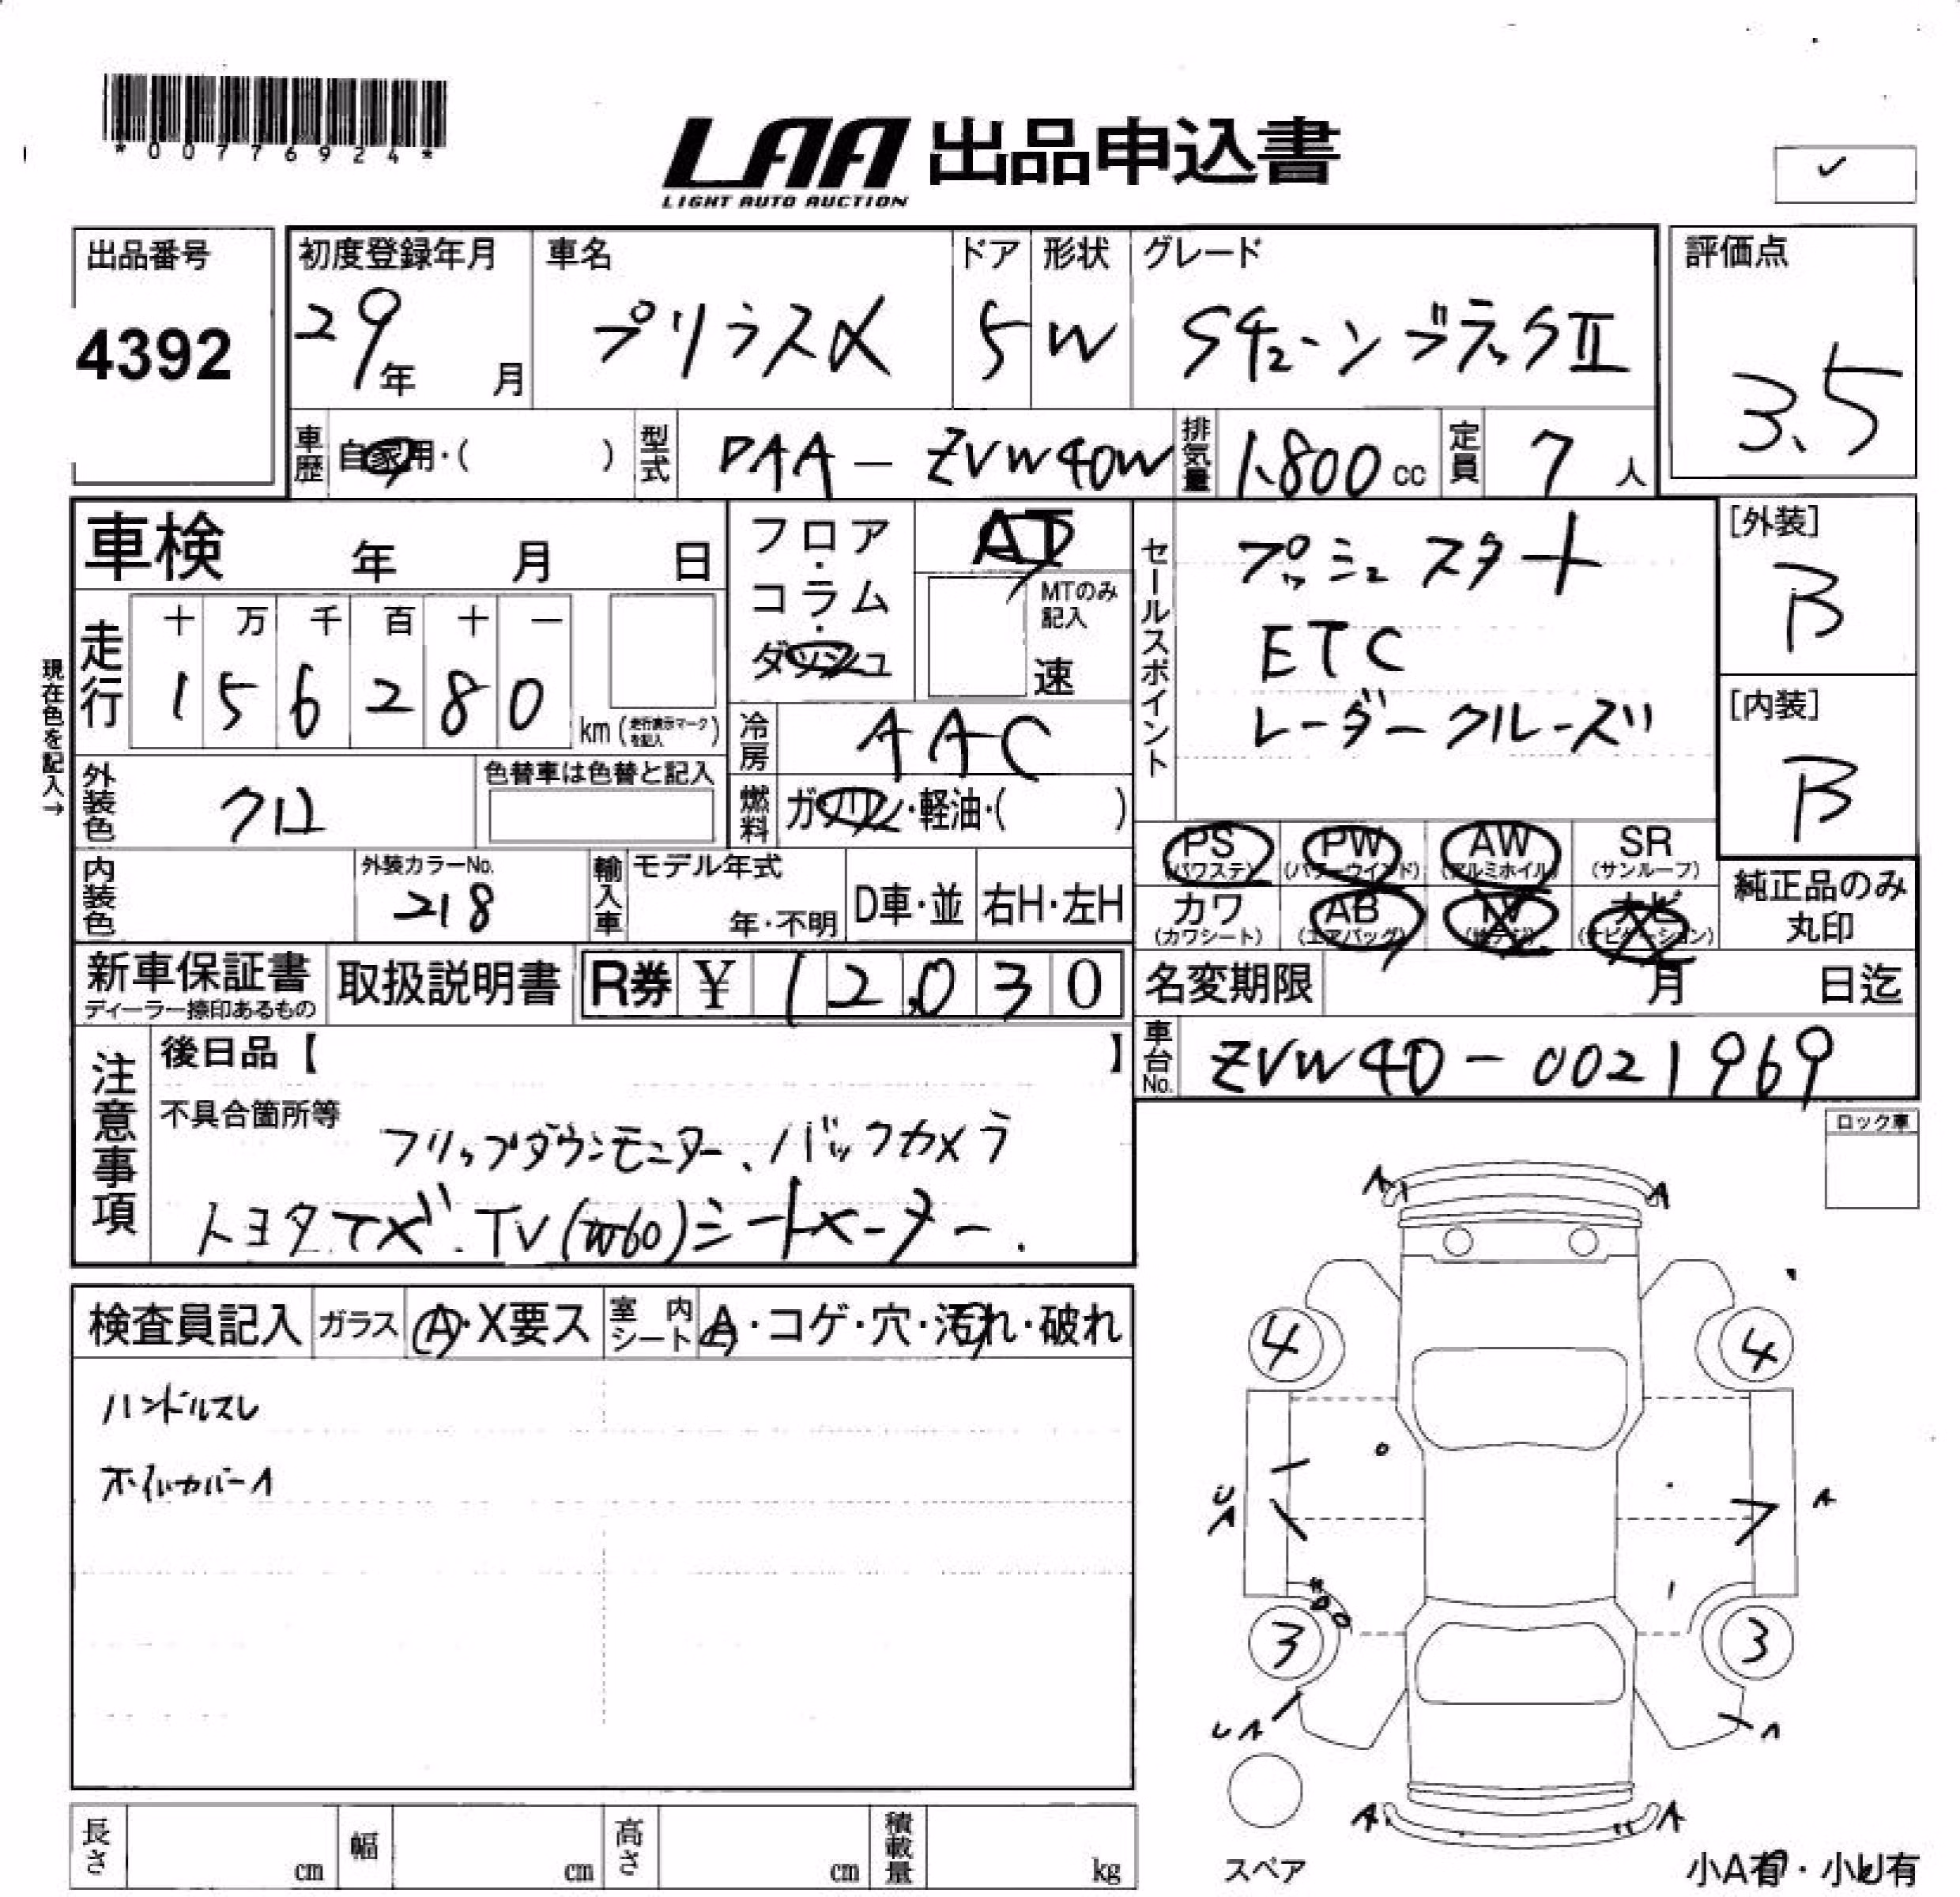 *00776924*
LAA 出品申込書
LIGHT AUTO AUCTION
✓
出品番号
4392
初度登録年月
29年 月
車名
プリウスα
ドア
5
形状
W
グレード
SチューンブラックⅡ
評価点
3.5
車歴 自家用・( )
型式 DAA-ZVW40W
排気量 1,800cc
定員 7人
車検 年 月 日
フロア・コラム・ダッシュ
AT
MTのみ記入
速
現在色を記入→
走行
十 万 千 百 十 一
1 5 6 2 8 0 km(走行表示マークを記入)
冷房 AAC
外装色 クロ
色替車は色替と記入
燃料 ガソリン・軽油・( )
セールスポイント
プッシュスタート
ETC
レーダークルーズ
[外装]
B
[内装]
B
PS (パワステ)
PW (パワーウインド)
AW (アルミホイル)
SR (サンルーフ)
カワ (カワシート)
AB (エアバッグ)
TV (地デジ)
ナビ (ナビゲーション)
純正品のみ丸印
内装色
外装カラーNo.
218
輸入車
モデル年式
年・不明
D車・並
右H・左H
新車保証書
ディーラー捺印あるもの
取扱説明書
R券 ¥ 12,030
名変期限 月 日迄
車台No. ZVW40-0021969
注意事項
後日品【 】
不具合箇所等
フリップダウンモニター、バックカメラ
トヨタナビ.TV(W60)シートヒーター.
ロック車
検査員記入
ガラス A・X要ス
室内シート A・コゲ・穴・汚れ・破れ
ハンドルスレ
ホイルカバーA
A A
4 4
U
A A
3 3
UA A
A A
スペア
小A有・小U有
長さ cm
幅 cm
高さ cm
積載量 kg